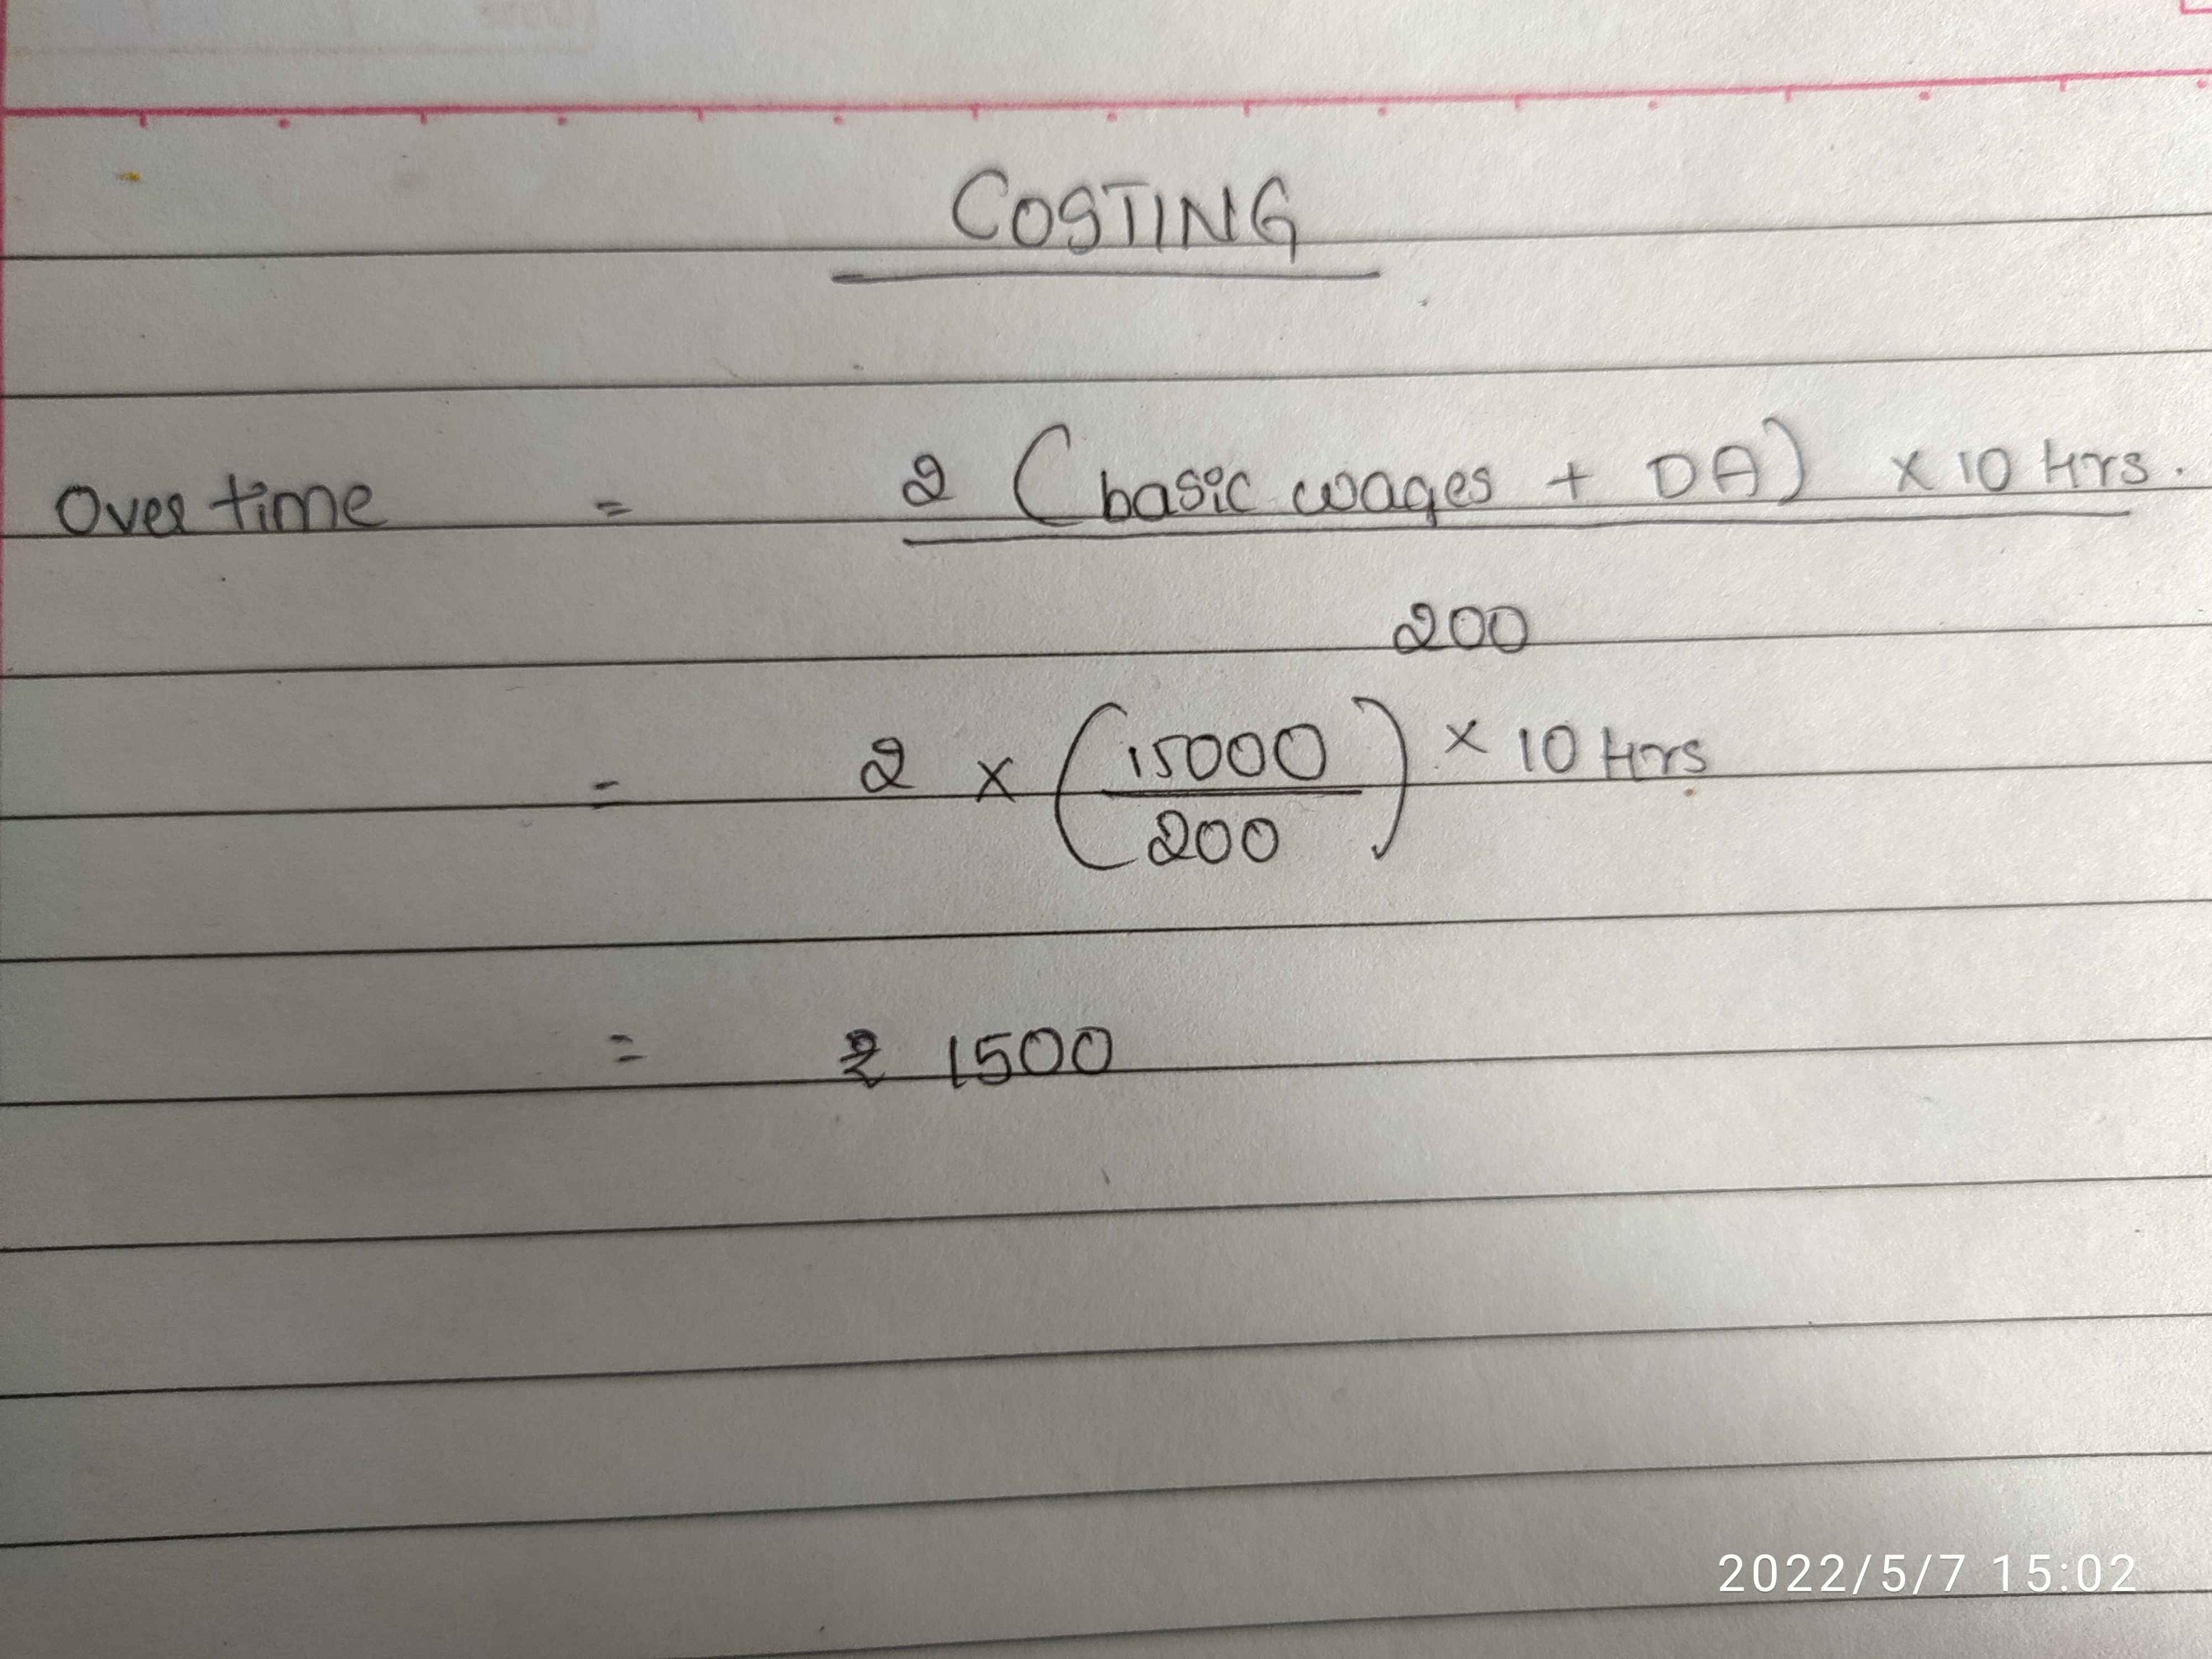 COSTING
Over time = 2 (basic wages + DA) × 10 Hrs.
200
= 2 × (15000 / 200) × 10 Hrs
= ₹ 1500
2022/5/7 15:02